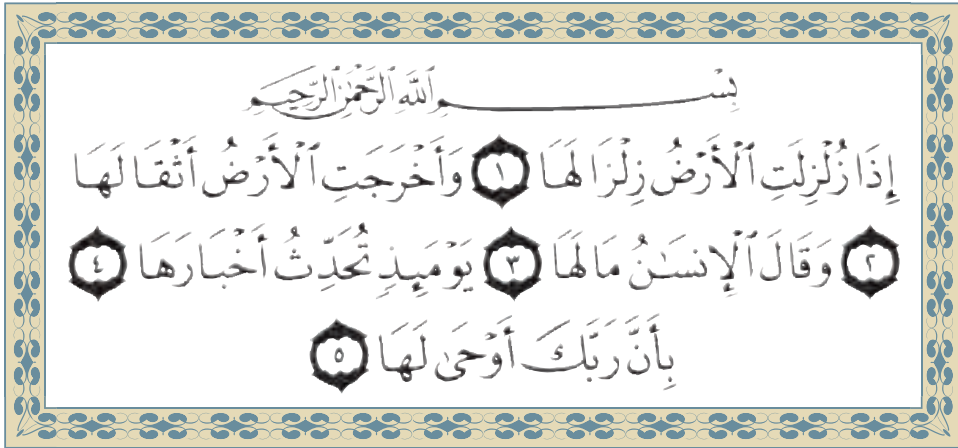 بِسْمِ ٱللَّهِ ٱلرَّحْمَٰنِ ٱلرَّحِيمِ
إِذَا زُلْزِلَتِ ٱلْأَرْضُ زِلْزَالَهَا ١ وَأَخْرَجَتِ ٱلْأَرْضُ أَثْقَالَهَا
٢ وَقَالَ ٱلْإِنسَٰنُ مَا لَهَا ٣ يَوْمَئِذٍ تُحَدِّثُ أَخْبَارَهَا ٤
بِأَنَّ رَبَّكَ أَوْحَىٰ لَهَا ٥